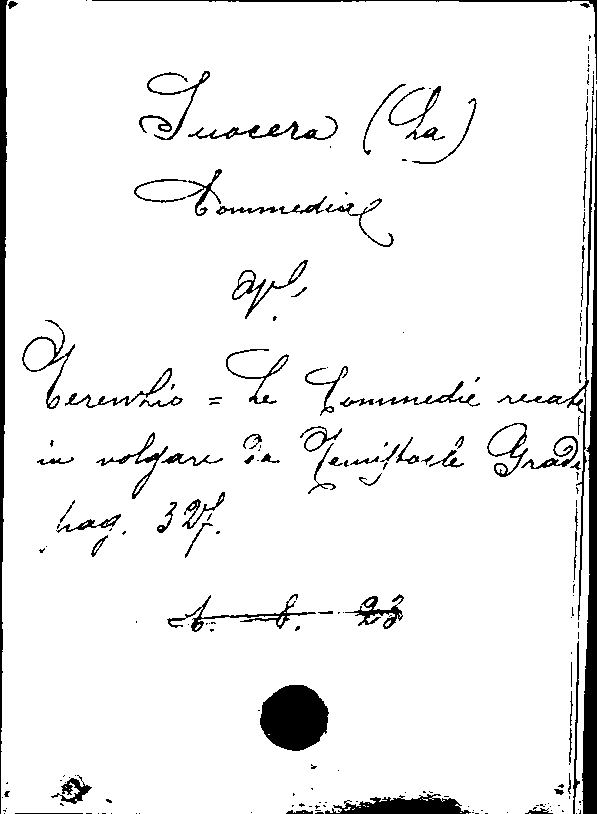 Suocera (La)
Commedia
apl.
Terenzio = Le Commedie recate
in volgare da Temistocle Gradi
pag. 327.
6. 8. 23